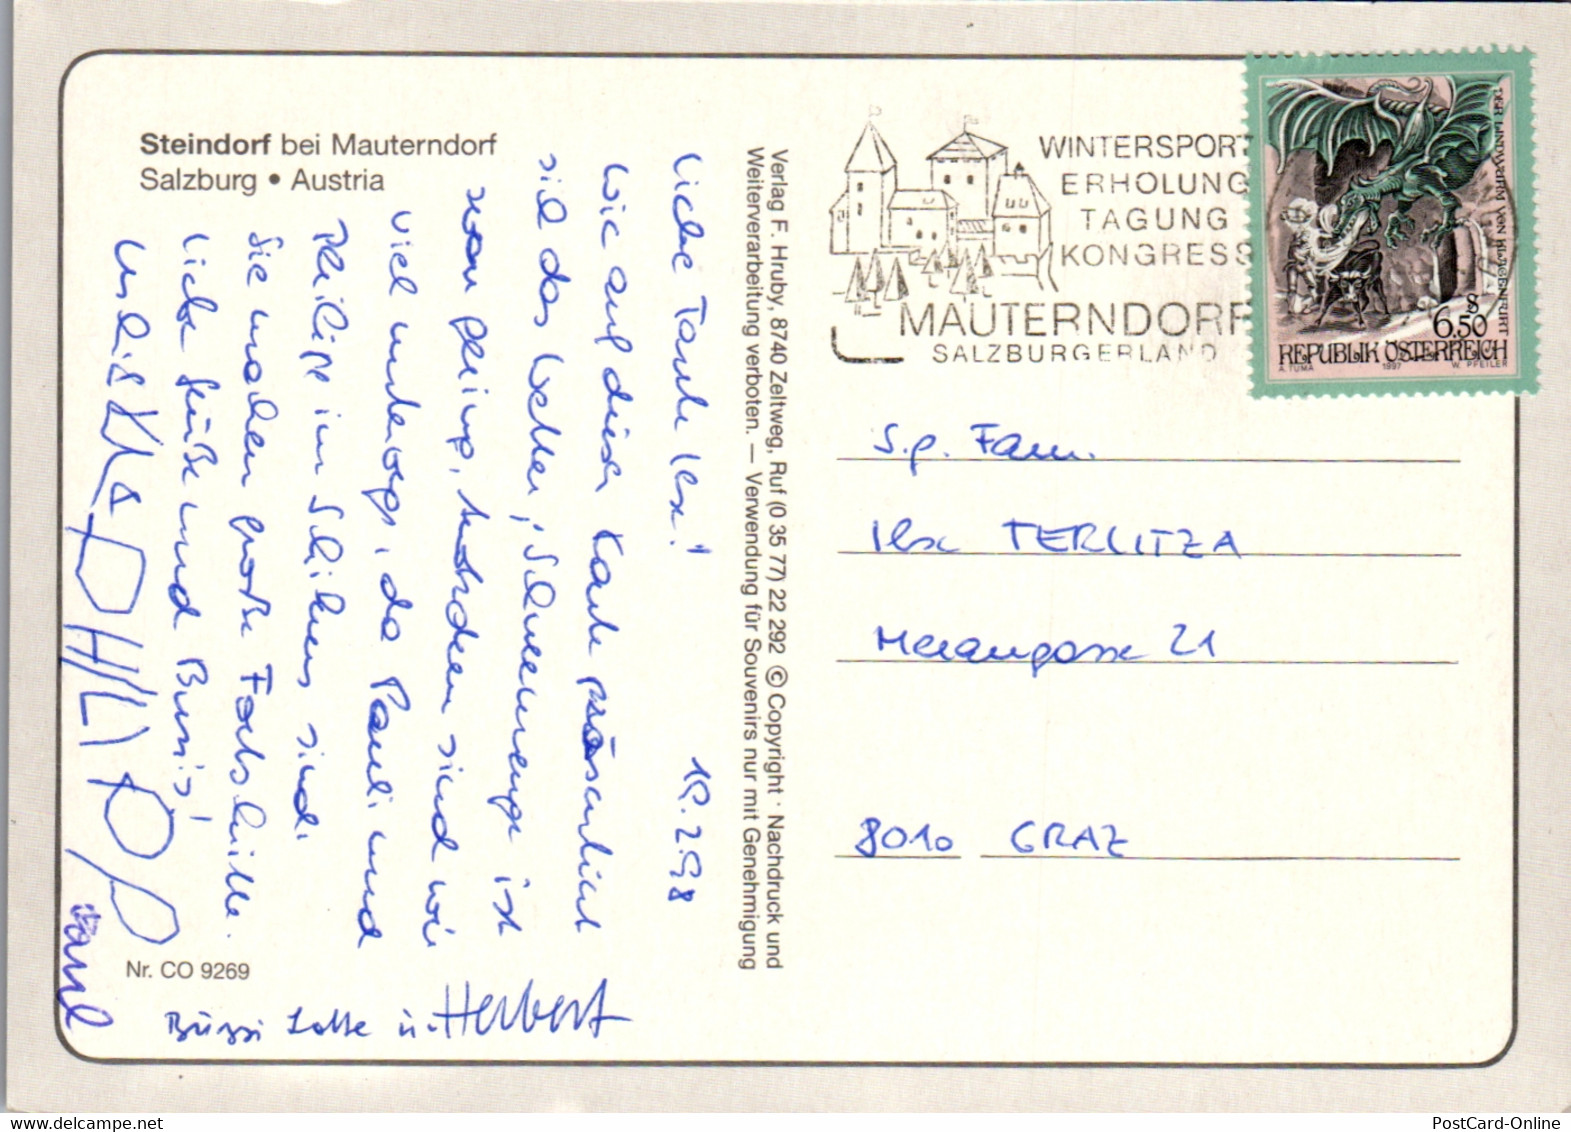 Steindorf bei Mauterndorf
Salzburg • Austria
Liebe Tante Ilse!
19.2.98
Wie auf dieser Karte präsentiert
sich das Wetter; Schneemenge ist
nur gering, trotzdem sind wir
viel unterwegs, da Pauli und
Philipp im Schikurs sind.
Sie machen große Fortschritte.
Liebe Grüße und Bussis!
PHILIPP
Paul
Bussi Lotte u. Herbert
Nr. CO 9269
Verlag F. Hruby, 8740 Zeltweg, Ruf (0 35 77) 22 292 © Copyright · Nachdruck und
Weiterverarbeitung verboten. — Verwendung für Souvenirs nur mit Genehmigung
WINTERSPORT
ERHOLUNG
TAGUNG
KONGRESS
MAUTERNDORF
SALZBURGERLAND
DER LINDWURM VON KLAGENFURT
S 6.50
REPUBLIK ÖSTERREICH
A. TUMA 1997 W. PFEILER
S.g. Fam.
Ilse TERLITZA
Merangasse 21
8010 GRAZ
PostCard-Online